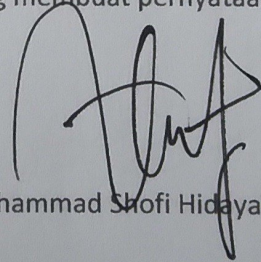 membuat pernyataa
hammad Shofi Hidaya